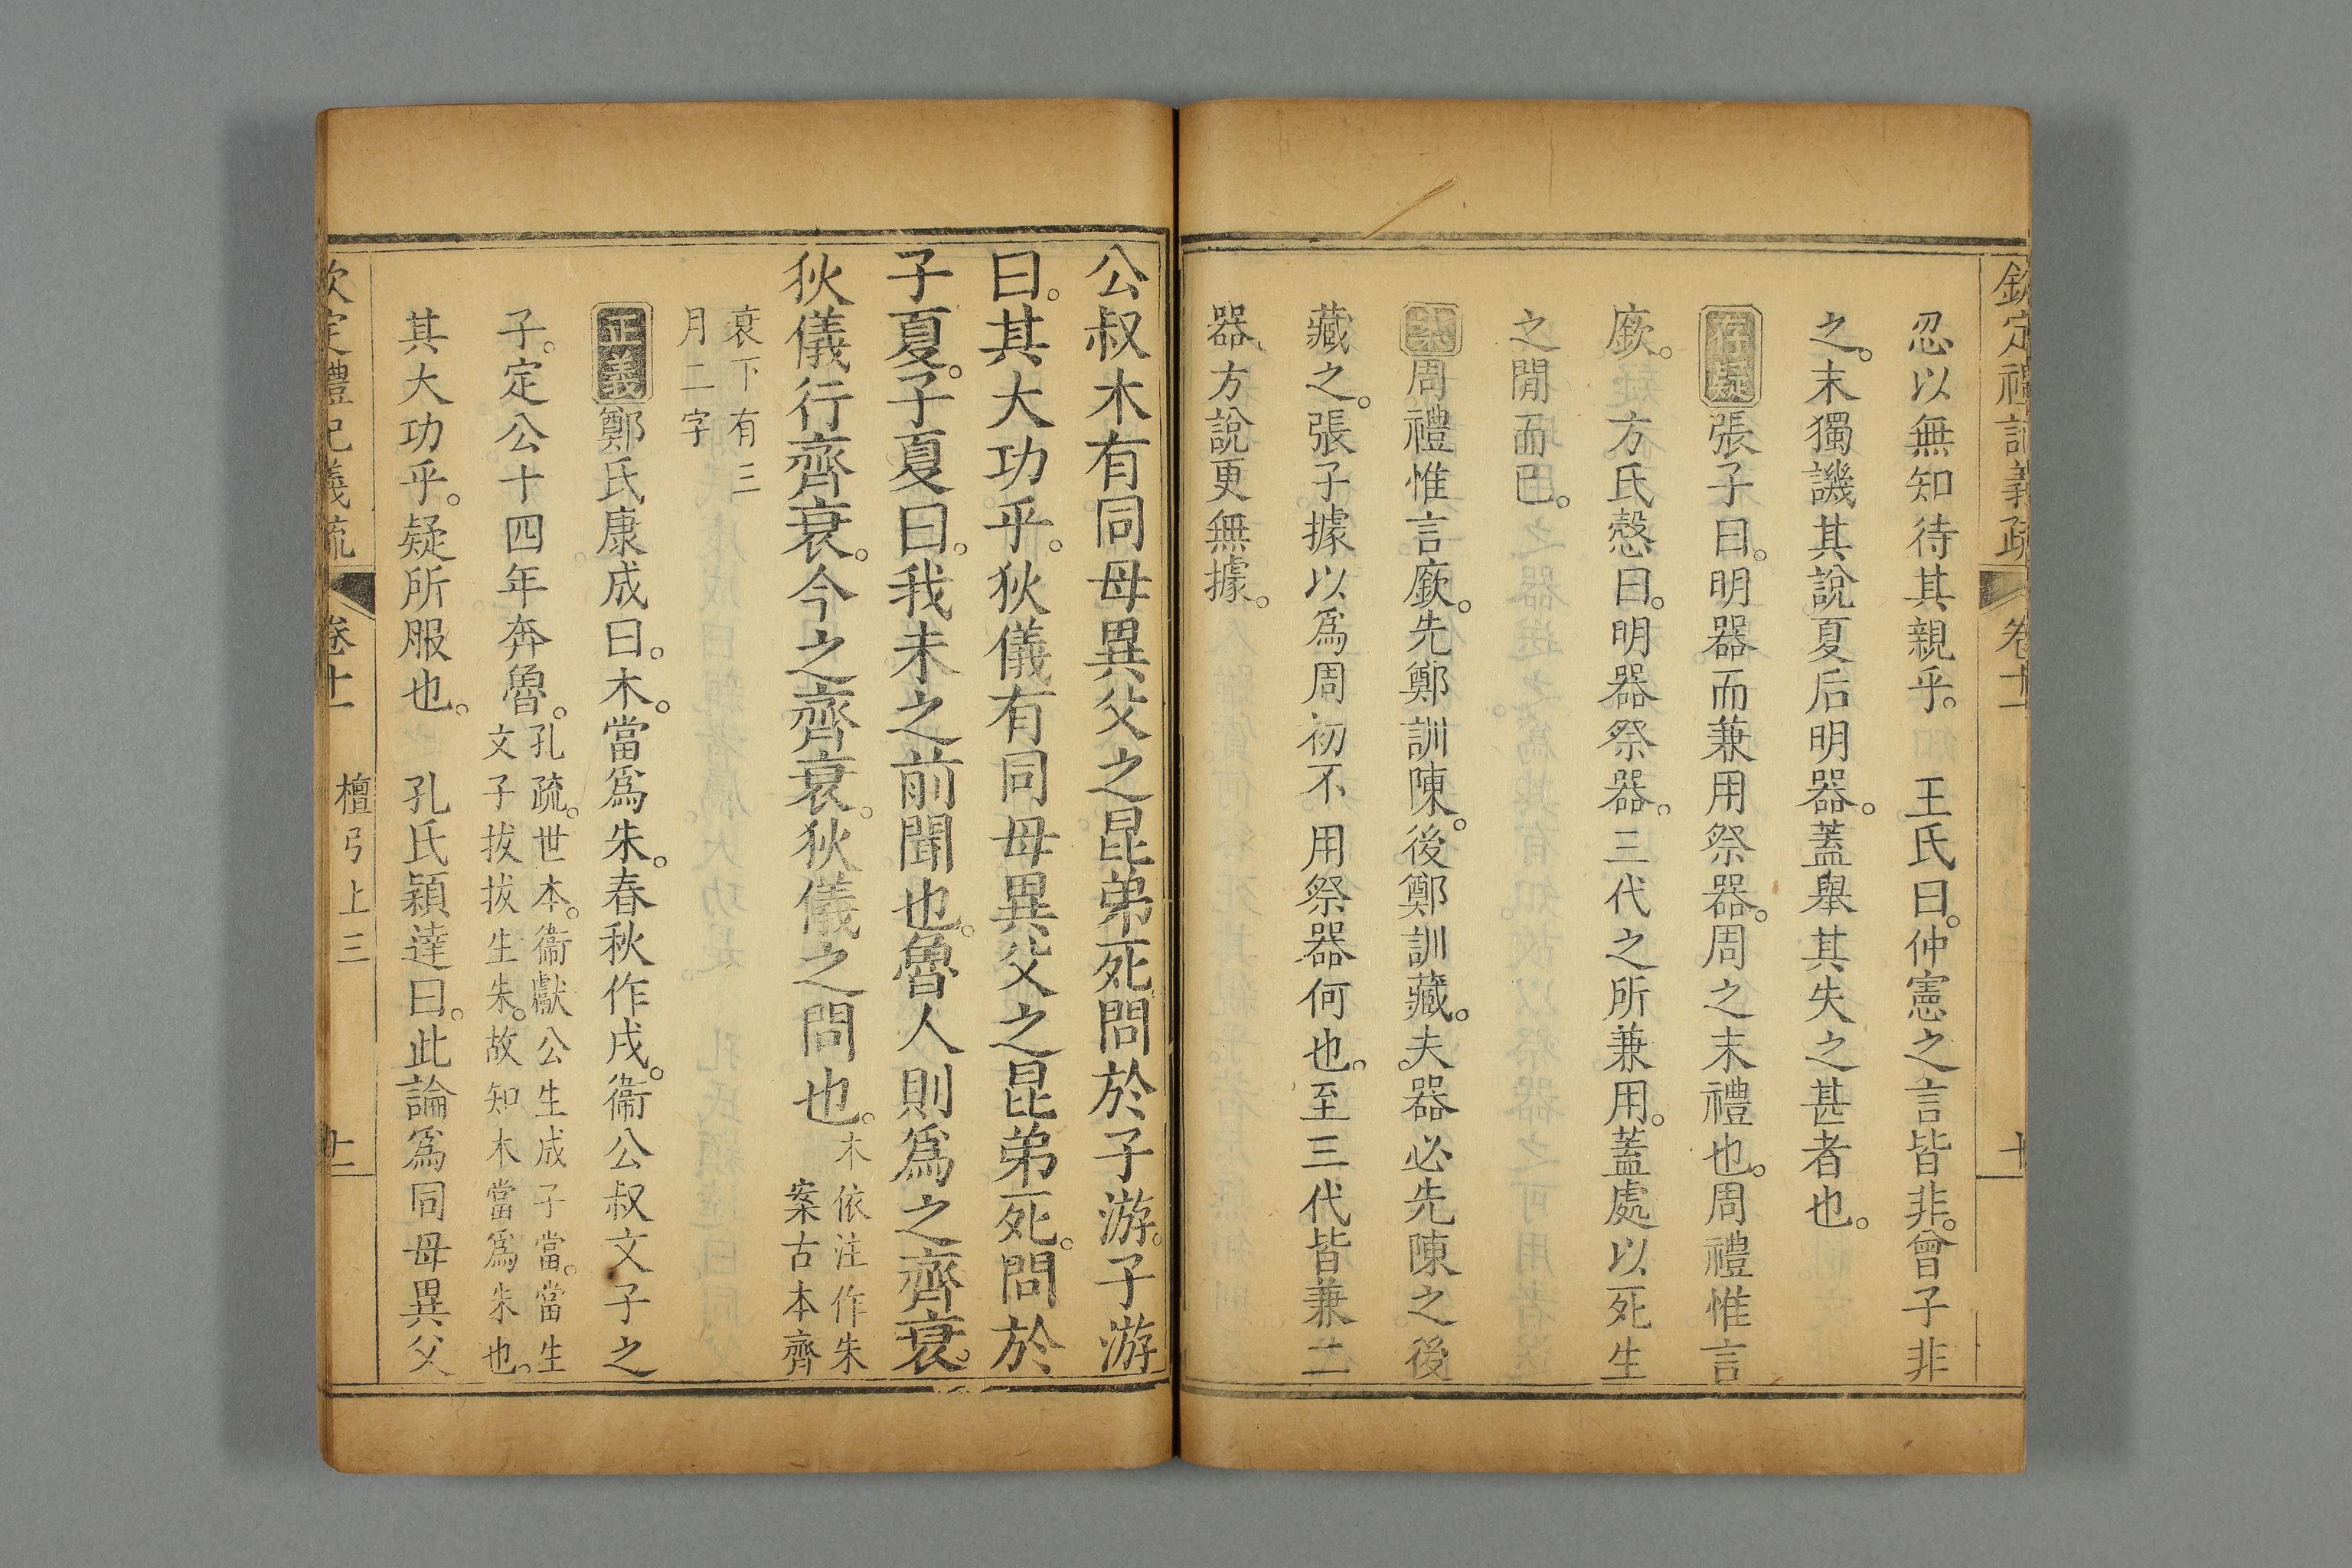 欽定禮記義疏 卷十一 十
忍以無知待其親乎。 王氏曰。仲憲之言皆非。曾子非
之。末獨譏其說夏后明器。蓋舉其失之甚者也。
存疑 張子曰。明器而兼用祭器。周之末禮也。周禮惟言
廞。 方氏慤曰。明器祭器。三代之所兼用。蓋處以死生
之閒而已。
案 周禮惟言廞。先鄭訓陳。後鄭訓藏。夫器必先陳之後
藏之。張子據以爲周初不用祭器何也。至三代皆兼二
器、方說更無據。
公叔木有同母異父之昆弟死問於子游。子游
曰。其大功乎。狄儀有同母異父之昆弟死。問於
子夏。子夏曰。我未之前聞也。魯人則爲之齊衰。
狄儀行齊衰。今之齊衰。狄儀之問也。木依注作朱
案古本齊
衰下有三
月二字
正義 鄭氏康成曰。木。當爲朱。春秋作戌。衞公叔文子之
子。定公十四年奔魯。孔疏。世本。衞獻公生成子當。當生
文子拔拔生朱。故知木當爲朱也。
其大功乎。疑所服也。 孔氏穎達曰。此論爲同母異父
欽定禮記義疏 卷十一 檀弓上三 十一